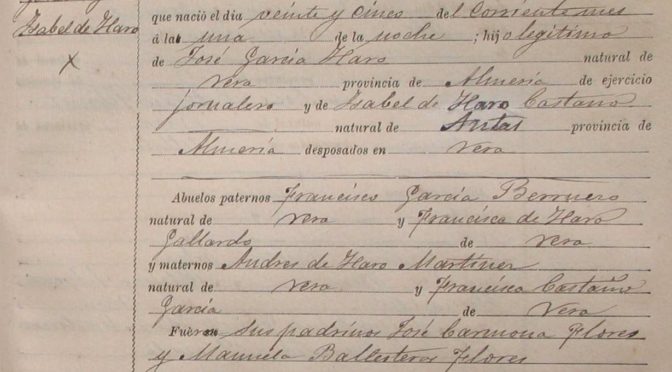 Isabel de Haro
X
que nació el dia veinte y cinco del Corriente mes
á la una de la noche ; hijo legitimo
de José Garcia Haro natural de
Vera provincia de Almería de ejercicio
jornalero y de Isabel de Haro Castaño
natural de Antas provincia de
Almeria desposados en Vera
Abuelos paternos Francisco Garcia Berruezo
natural de Vera y Francisca de Haro
Gallardo de Vera
y maternos Andres de Haro Martinez
natural de Vera y Francisca Castaño
Garcia de Vera
Fueron sus padrinos José Carmona Flores
y Manuela Ballesteros Flores